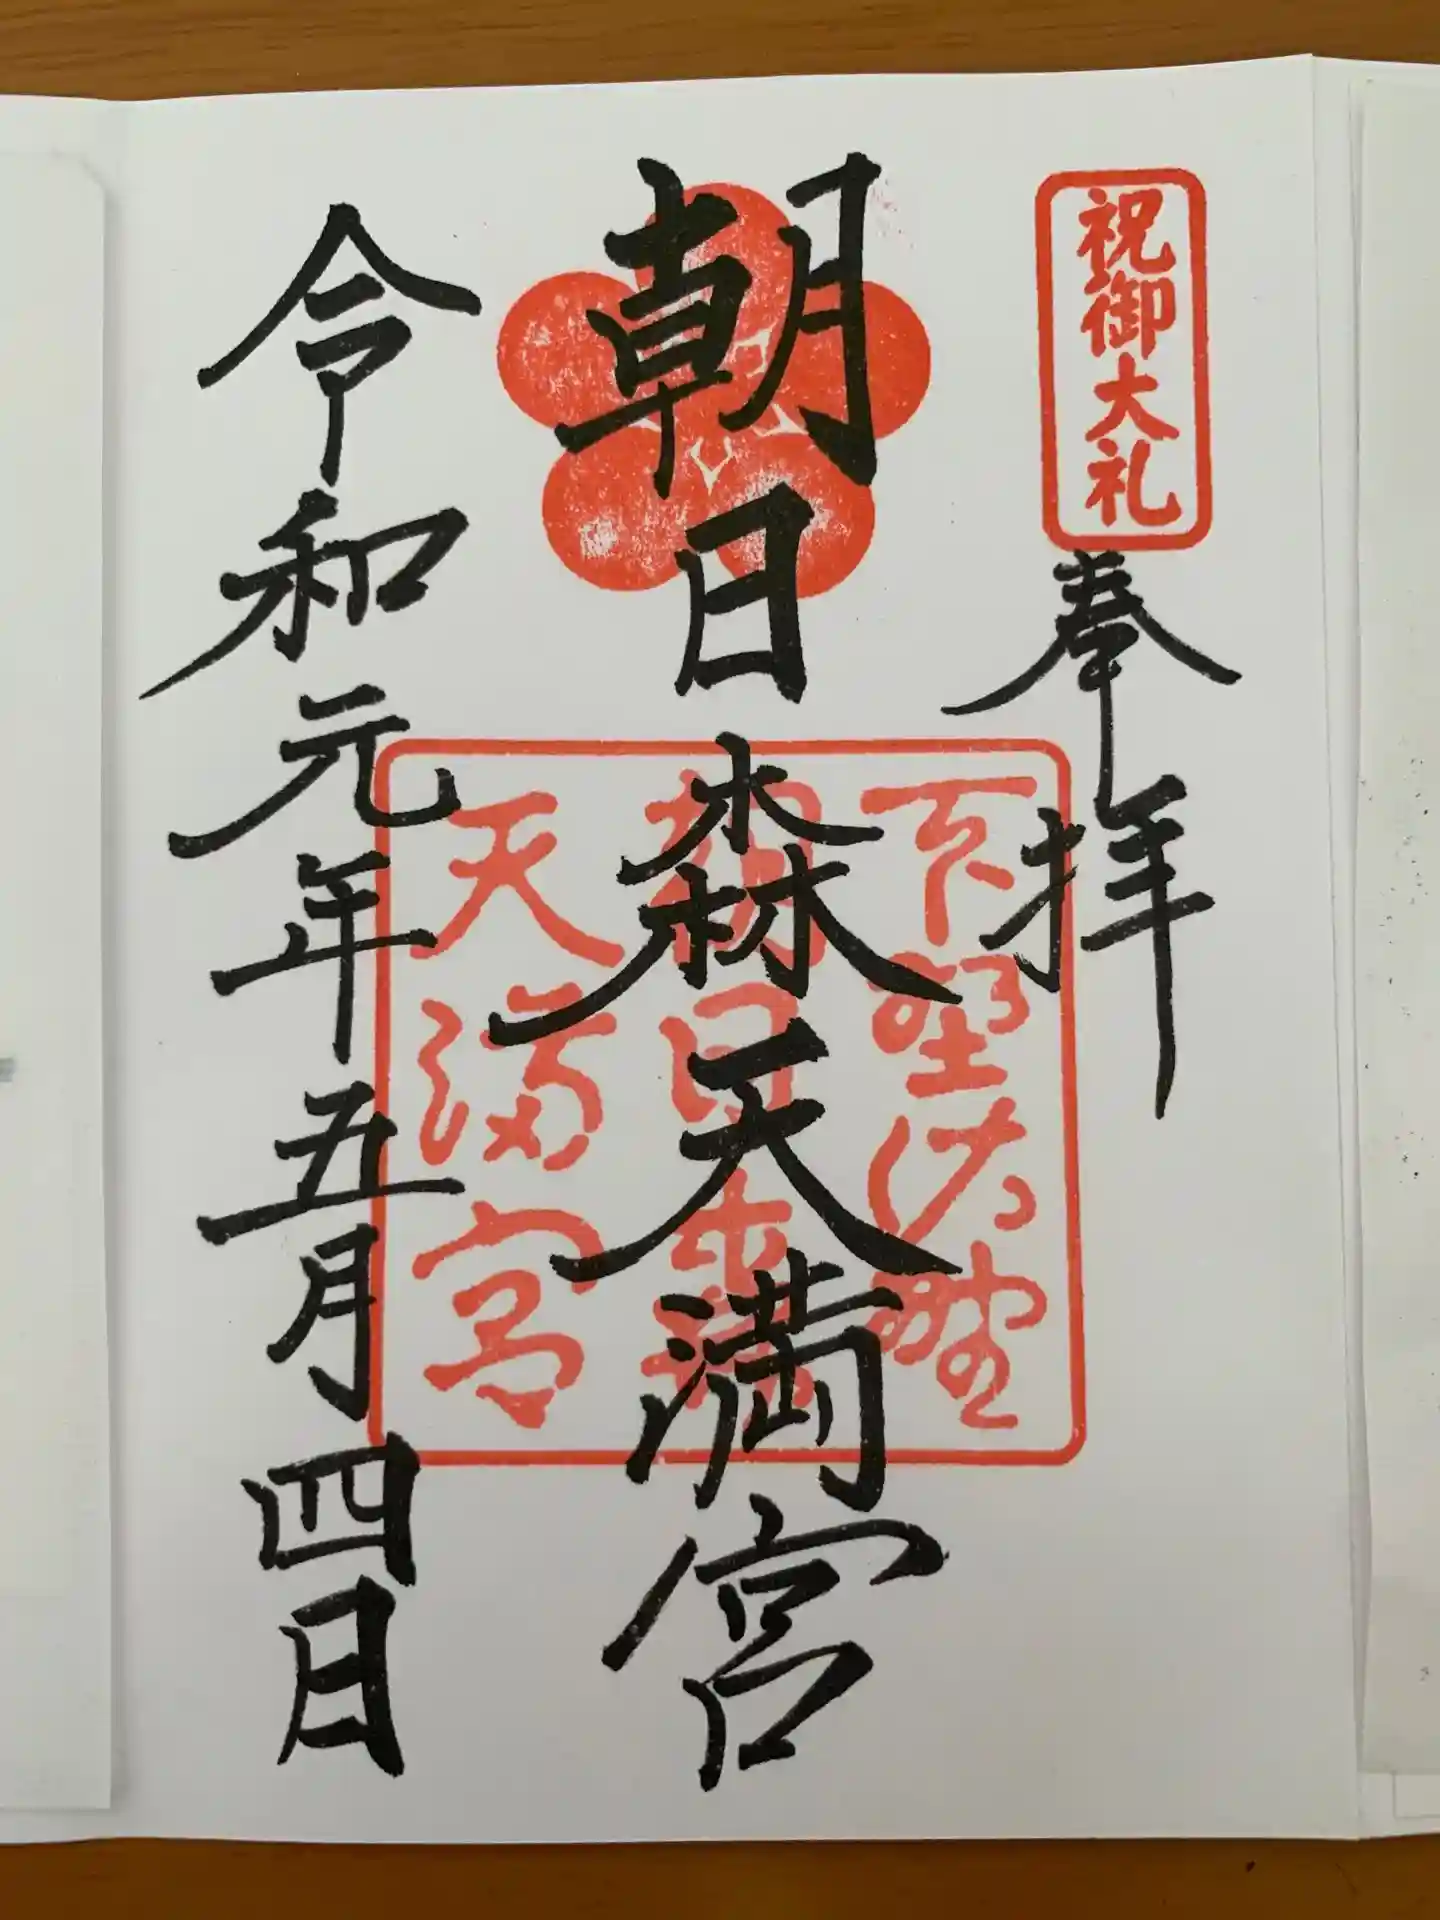 祝御大礼
奉拝
朝日森天満宮
下野佐野
朝日森
天満宮
令和元年五月四日